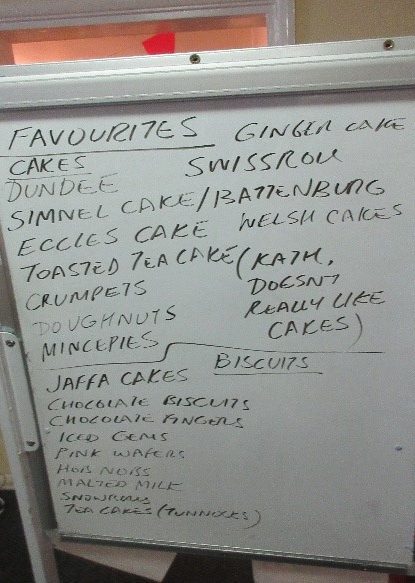 FAVOURITES GINGER CAKE
CAKES SWISSROLL
DUNDEE
SIMNEL CAKE/BATTENBURG
ECCLES CAKE WELSH CAKES
TOASTED TEACAKE (KATH,
CRUMPETS DOESNT
DOUGHNUTS REALLY LIKE
MINCEPIES CAKES)
BISCUITS
JAFFA CAKES
CHOCOLATE BISCUITS
CHOCOLATE FINGERS
ICED GEMS
PINK WAFERS
HOB NOBS
MALTED MILK
SNOWBALLS
TEA CAKES (TUNNOCKS)